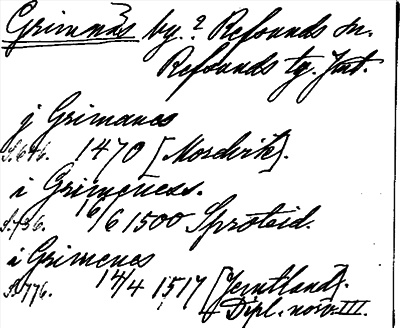 Grimnäs by.? Refsunds sn.
Refsunds tg. Jmt.
j Grimanes
S. 646. 1470 [Mordvik].
i Grimeness.
S. 736. 16/6 1500 Sproteid.
i Grimenes
S. 776. 14/4 1517 [Jemtland].
Dipl. norv. III.